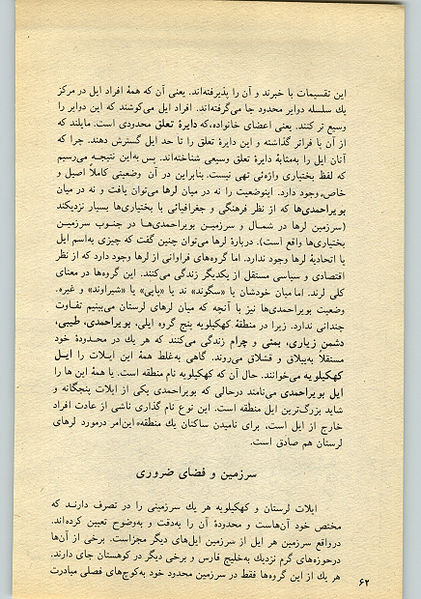 این تقسیمات با خبرند و آن را پذیرفته‌اند. یعنی آن که همهٔ افراد ایل در مرکز
یك سلسله دوایر محدود جا می‌گرفته‌اند. افراد ایل می‌کوشند که این دوایر را
وسیع تر کنند. یعنی اعضای خانواده، که دایرهٔ تعلق محدودی است. مایلند که
از آن پا فراتر گذاشته و این دایرهٔ تعلق را تا حد ایل گسترش دهند. چرا که
آنان ایل را به‌مثابهٔ دایرهٔ تعلق وسیعی شناخته‌اند. پس به‌این نتیجه می‌رسیم
که لفظ بختیاری واژه‌ئی تهی نیست. بنابراین در آن وضعیتی کاملاً اصیل و
خاص وجود دارد. اینوضعیت را نه در میان لرها می‌توان یافت و نه در میان
بویراحمدی‌ها که از نظر فرهنگی و جغرافیائی با بختیاری‌ها بسیار نزدیکند
(سرزمین لرها در شمال و سرزمین بویراحمدی‌ها در جنوب سرزمین
بختیاری‌ها واقع است). دربارهٔ لرها می‌توان چنین گفت که چیزی به‌اسم ایل
یا اتحادیهٔ لرها وجود ندارد. اما گروه‌های فراوانی از لرها وجود دارد که از نظر
اقتصادی و سیاسی مستقل از یکدیگر زندگی می‌کنند. این گروه‌ها در معنای
کلی لرند. اما میان خودشان یا «سگوند» ند یا «پاپی» یا «شیراوند» و غیره.
وضعیت بویراحمدی‌ها نیز با آنچه که میان لرهای لرستان می‌بینیم تفاوت
چندانی ندارد. زیرا در منطقهٔ کهکیلویه پنج گروه ایلی، بویراحمدی، طیبی،
دشمن زیاری، بمنی و چرام زندگی می‌کنند که هر یك در محدودهٔ خود
مستقلاً به‌ییلاق و قشلاق می‌روند. گاهی به‌غلط همهٔ این ایلات را ایل
کهکیلویه می‌خوانند. حال آن که کهکیلویه نام منطقه است. یا همهٔ این ها را
ایل بویراحمدی می‌نامند درحالی که بویراحمدی یکی از ایلات پنجگانه و
شاید بزرگ‌ترین ایل منطقه است. این نوع نام گذاری ناشی از عادت افراد
خارج از ایل است، برای نامیدن ساکنان یك منطقه. این‌امر درمورد لرهای
لرستان هم صادق است.
سرزمین و فضای ضروری
ایلات لرستان و کهکیلویه هر یك سرزمینی را در تصرف دارند که
مختص خود آن‌هاست و محدودهٔ آن را به‌دقت و به‌وضوح تعیین کرده‌اند.
درواقع سرزمین هر ایل از سرزمین ایل‌های دیگر مجزاست. برخی از آن‌ها
درحوزه‌های گرم نزدیك به‌خلیج فارس و برخی دیگر در کوهستان جای دارند.
هر یك از این گروه‌ها فقط در سرزمین محدود خود به‌کوچ‌های فصلی مبادرت
۶۲